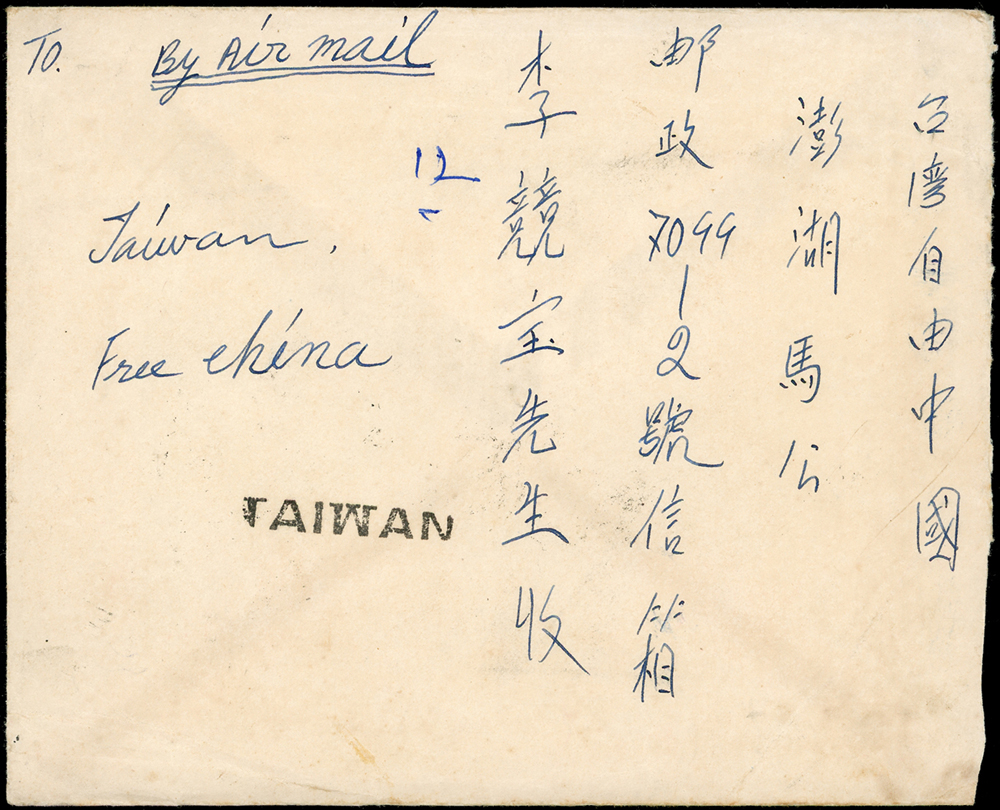 TO.
By Air mail
台湾自由中國
澎湖馬公
邮政7099|2號信箱
李競宝先生收
12
Taiwan,
Free china
TAIWAN